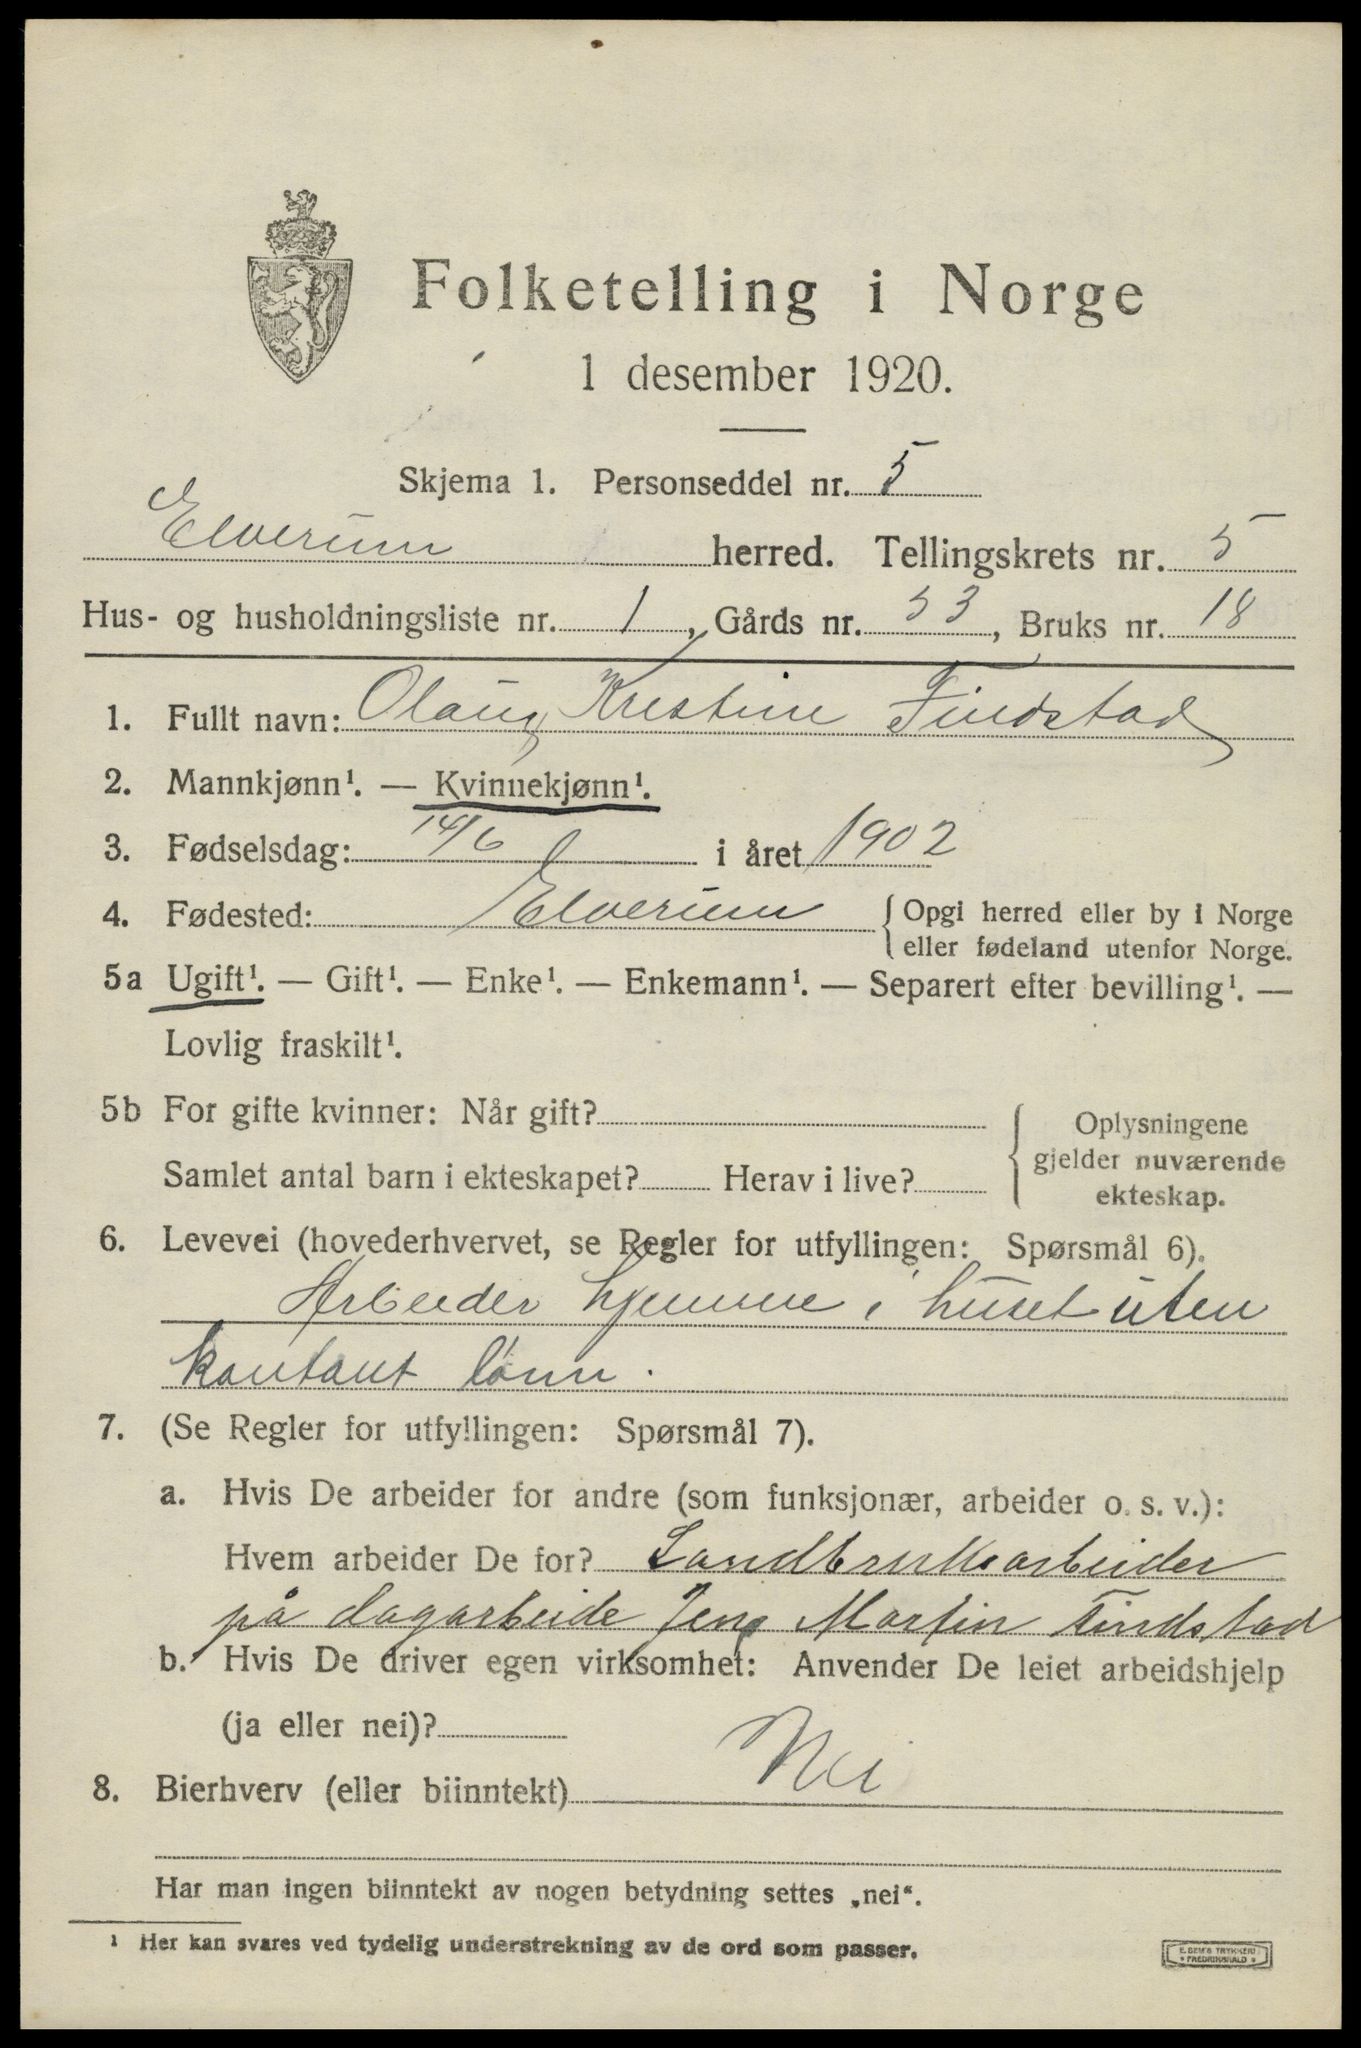 Folketelling i Norge
1 desember 1920.
Skjema 1. Personseddel nr. 5
Elverum herred. Tellingskrets nr. 5
Hus- og husholdningsliste nr. 1, Gårds nr. 53, Bruks nr. 18
1. Fullt navn: Olaug Kristine Findstad
2. Mannkjønn¹. — Kvinnekjønn¹.
3. Fødselsdag: 14/6 i året 1902
4. Fødested: Elverum { Opgi herred eller by i Norge
eller fødeland utenfor Norge.
5a Ugift¹. — Gift¹. — Enke¹. — Enkemann¹. — Separert efter bevilling¹. —
Lovlig fraskilt¹.
5b For gifte kvinner: Når gift? { Oplysningene
gjelder nuværende
Samlet antal barn i ekteskapet? Herav i live? ekteskap.
6. Levevei (hovederhvervet, se Regler for utfyllingen: Spørsmål 6).
Arbeider hjemme i huset uten
kontant lønn.
7. (Se Regler for utfyllingen: Spørsmål 7).
a. Hvis De arbeider for andre (som funksjonær, arbeider o. s. v.):
Hvem arbeider De for? Landbruksarbeider
på dagarbeide Jens Martin Findstad
b. Hvis De driver egen virksomhet: Anvender De leiet arbeidshjelp
(ja eller nei)?
8. Bierhverv (eller biinntekt) Nei
Har man ingen biinntekt av nogen betydning settes „nei“.
¹ Her kan svares ved tydelig understrekning av de ord som passer.
E. SEM'S TRYKKERI
* FREDRIKSHALD *